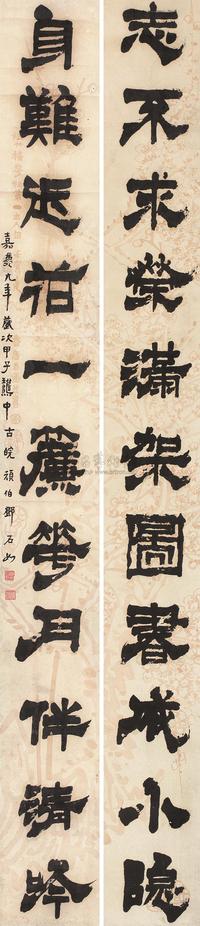 志不求榮滿架圖書成小隐
身難近俗一簾花月伴清吟
嘉慶九年歲次甲子中古皖頑伯鄧石如